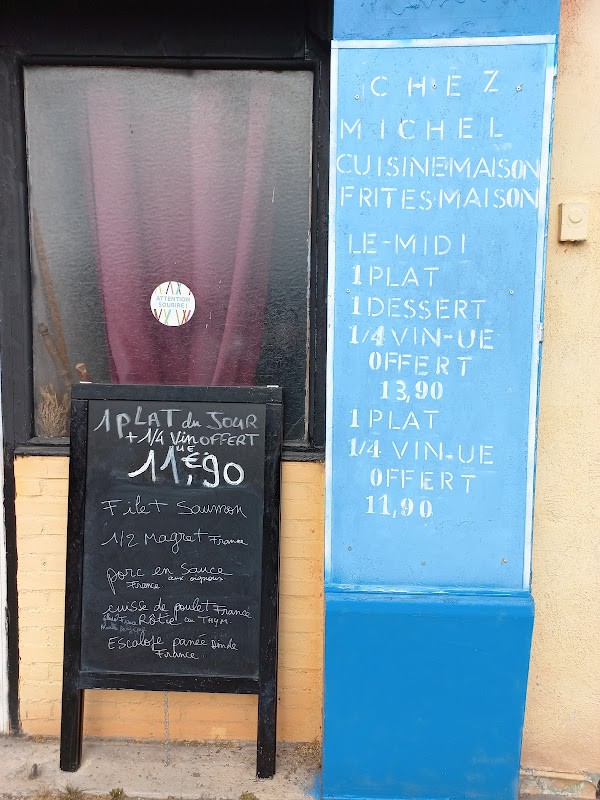 ATTENTION
SOURIRE!
1 PLAT du JOUR
+ 1/4 Vin OFFERT
UE
11€,90
Filet Saumon
1/2 Magret France
porc en Sauce
France aux oignons
cuisse de poulet France
Rôtie au THYM
Escalope panée Dinde
France
CHEZ
MICHEL
CUISINE·MAISON
FRITES·MAISON
LE-MIDI
1 PLAT
1 DESSERT
1/4 VIN-UE
OFFERT
13,90
1 PLAT
1/4 VIN-UE
OFFERT
11,90